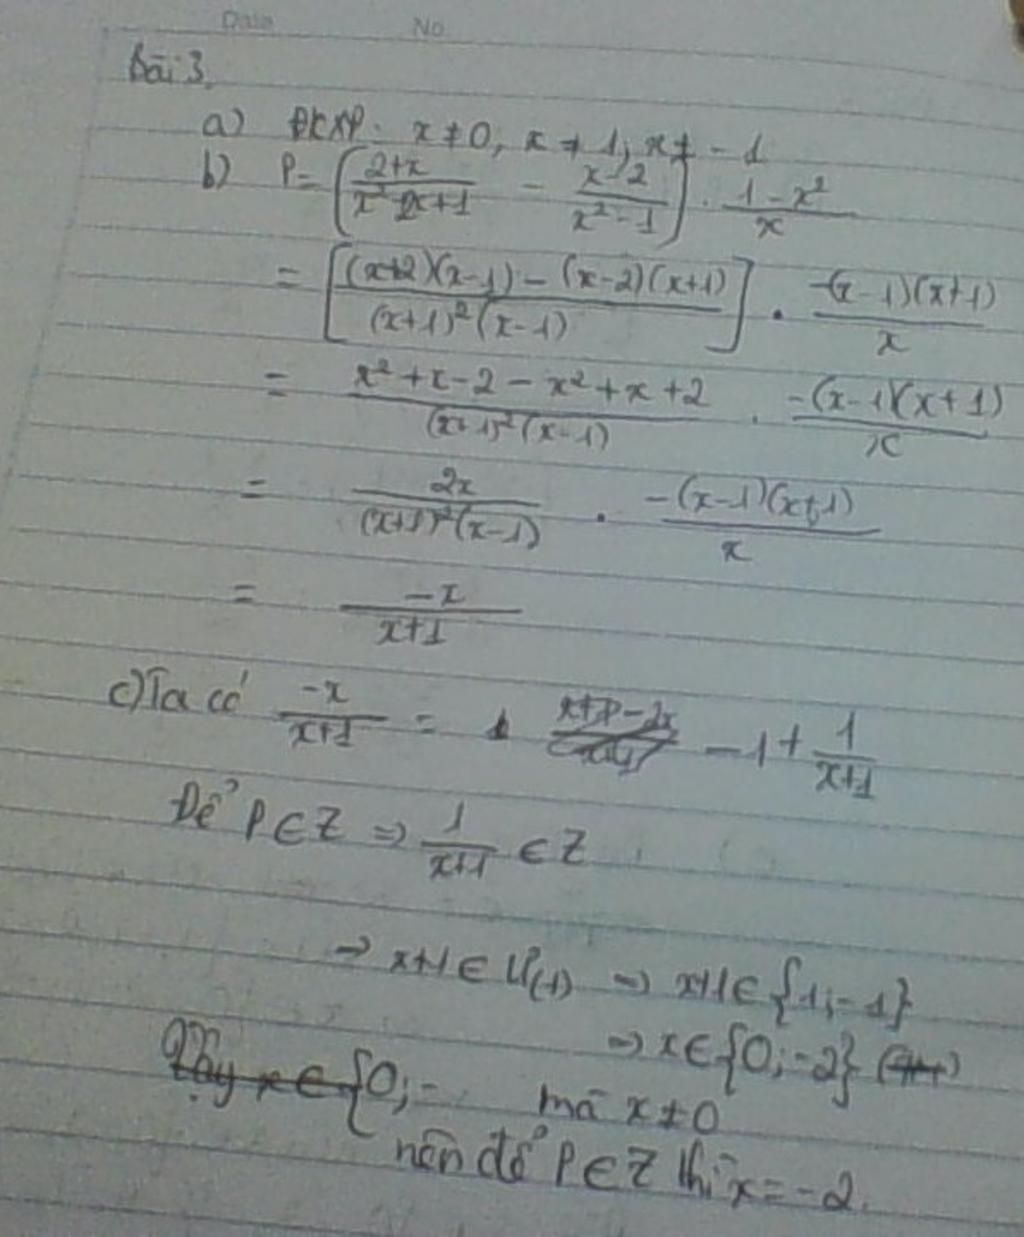 Date No
Bài 3.
a) ĐKXĐ: x ≠ 0, x ≠ 1, x ≠ - 1
b) P = [(2+x)/(x²+2x+1) - (x-2)/(x²-1)] . (1-x²)/x
= [((x+2)(x-1) - (x-2)(x+1))/((x+1)²(x-1))] . (-(x-1)(x+1))/x
= (x²+x-2-x²+x+2)/((x+1)²(x-1)) . (-(x-1)(x+1))/x
= 2x/((x+1)²(x-1)) . (-(x-1)(x+1))/x
= -x/(x+1)
c) Ta có -x/(x+1) = -1 + 1/(x+1)
Để P ∈ Z => 1/(x+1) ∈ Z
=> x+1 ∈ Ư(1) => x+1 ∈ {1; -1}
=> x ∈ {0; -2}
Vậy x ∈ {0; - mà x ≠ 0
nên để P ∈ Z thì x = -2.